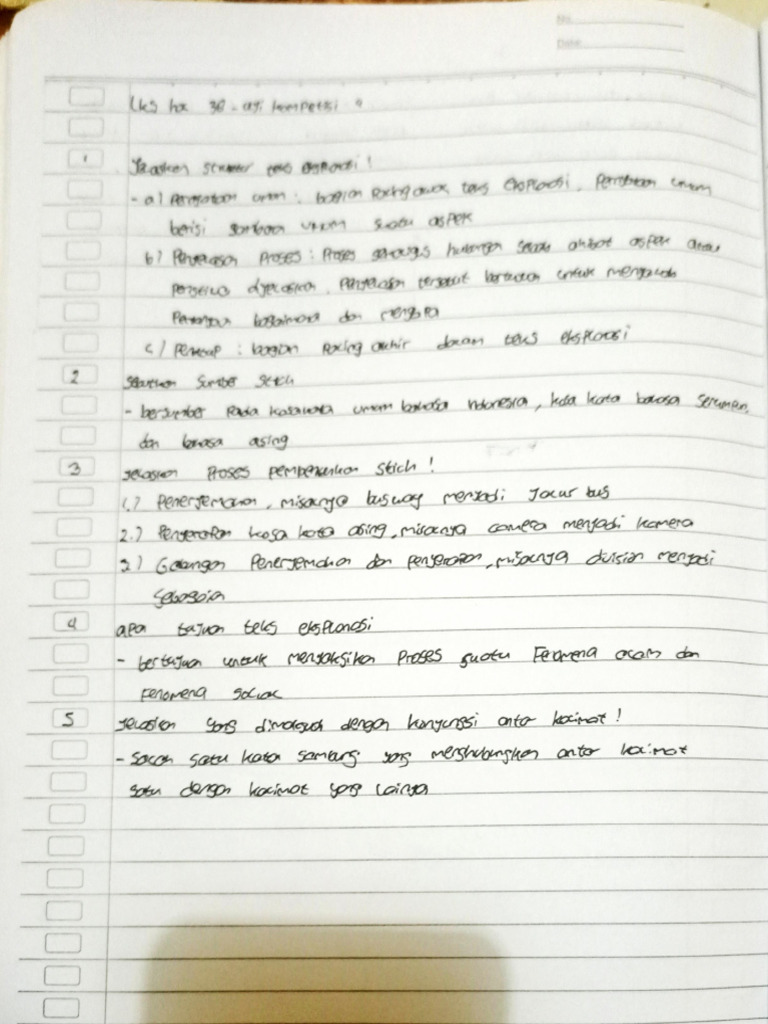 No
Date
LKS hal 30 - uji kompetisi 4
1 Jelaskan struktur teks eksplanasi!
- a) Pernyataan umum: bagian Paling awal teks eksplanasi. Pernyataan umum
berisi gambaran umum suatu aspek
b) Penjelasan Proses: Proses sekaligus hubungan sebab akibat aspek atau
Peristiwa dijelaskan. Penjelasan tersebut bertujuan untuk menjawab
Pertanyaan bagaimana dan mengapa
c) Penutup: bagian Paling akhir dalam teks eksplanasi
2 Sebutkan Sumber
- bersumber Pada kosakata umum bahasa indonesia, kosa kata bahasa serumpun,
dan bahasa asing
3 jelaskan Proses !
1.) Penerjemahan, misalnya busway menjadi Jalur bus
2.) Penyerapan kosa kata asing, misalnya camera menjadi kamera
3) Gabungan Penerjemahan dan penyerapan, misalnya menjadi
4 apa tujuan teks eksplanasi
- bertujuan untuk Proses suatu Fenomena alam dan
Fenomena sosial
5 jelaskan yang dimaksud dengan konjungsi antar kalimat!
- Salah satu kata sambung yang menghubungkan antar kalimat
satu dengan kalimat yang lainya